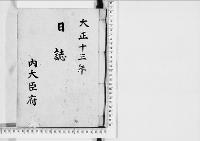 大正十三年
日誌
内大臣府